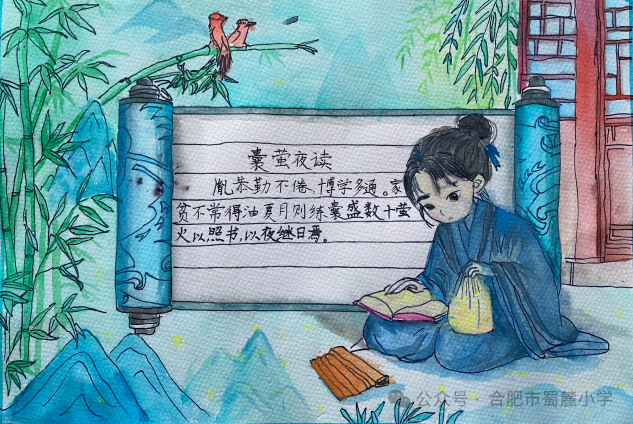 囊萤夜读
胤恭勤不倦,博学多通。家
贫不常得油夏月则练囊盛数十萤
火以照书,以夜继日焉。
公众号 · 合肥市蜀麓小学